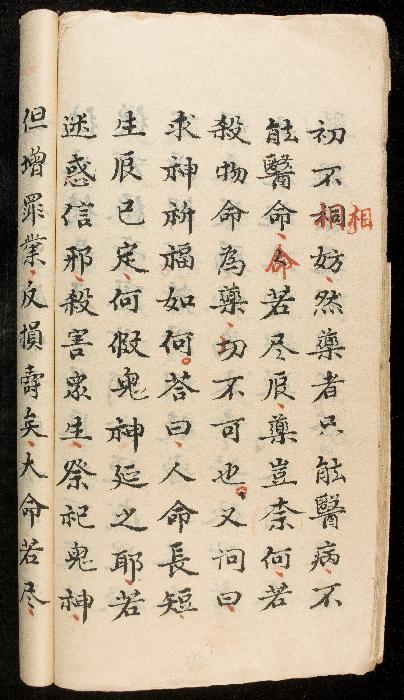 初不相妨、然藥者只能醫病、不
相
能醫命、命若尽辰、藥豈奈何、若
殺物命為藥、切不可也。又问曰、
求神祈福如何。荅曰、人命長短、
生辰已定、何假鬼神延之耶、若
迷惑信邪、殺害衆生、祭祀鬼神、
但增罪業、反損壽矣、大命若尽、